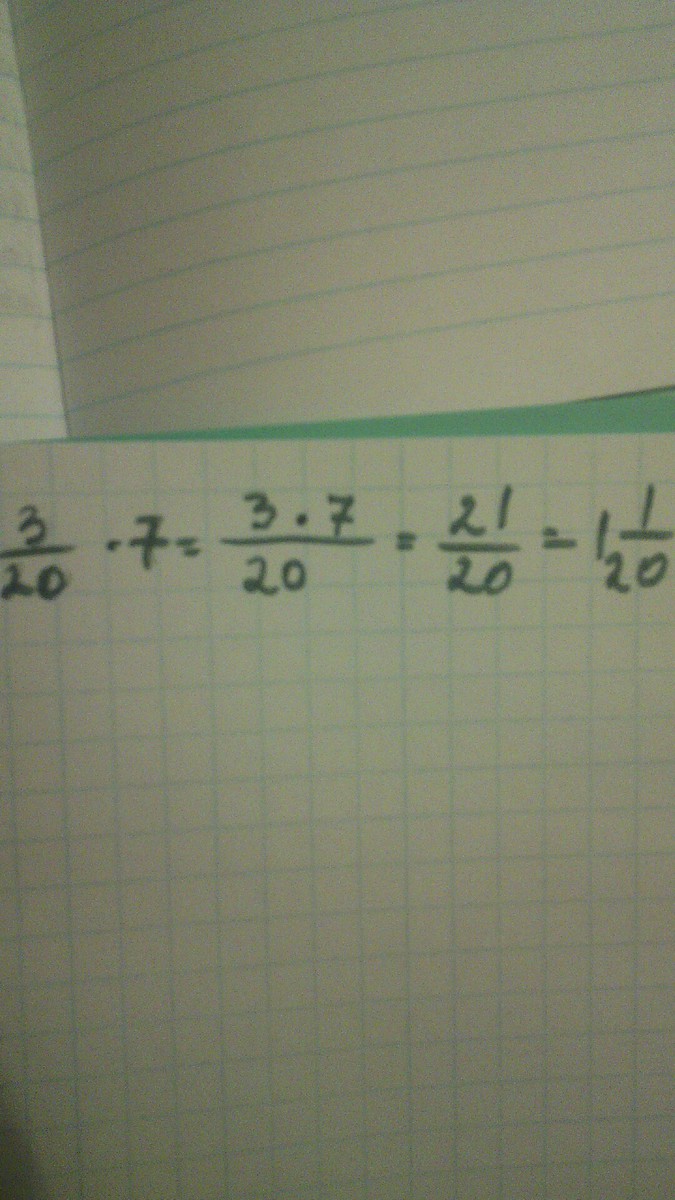 3/20 · 7 = 3 · 7/20 = 21/20 = 1 1/20